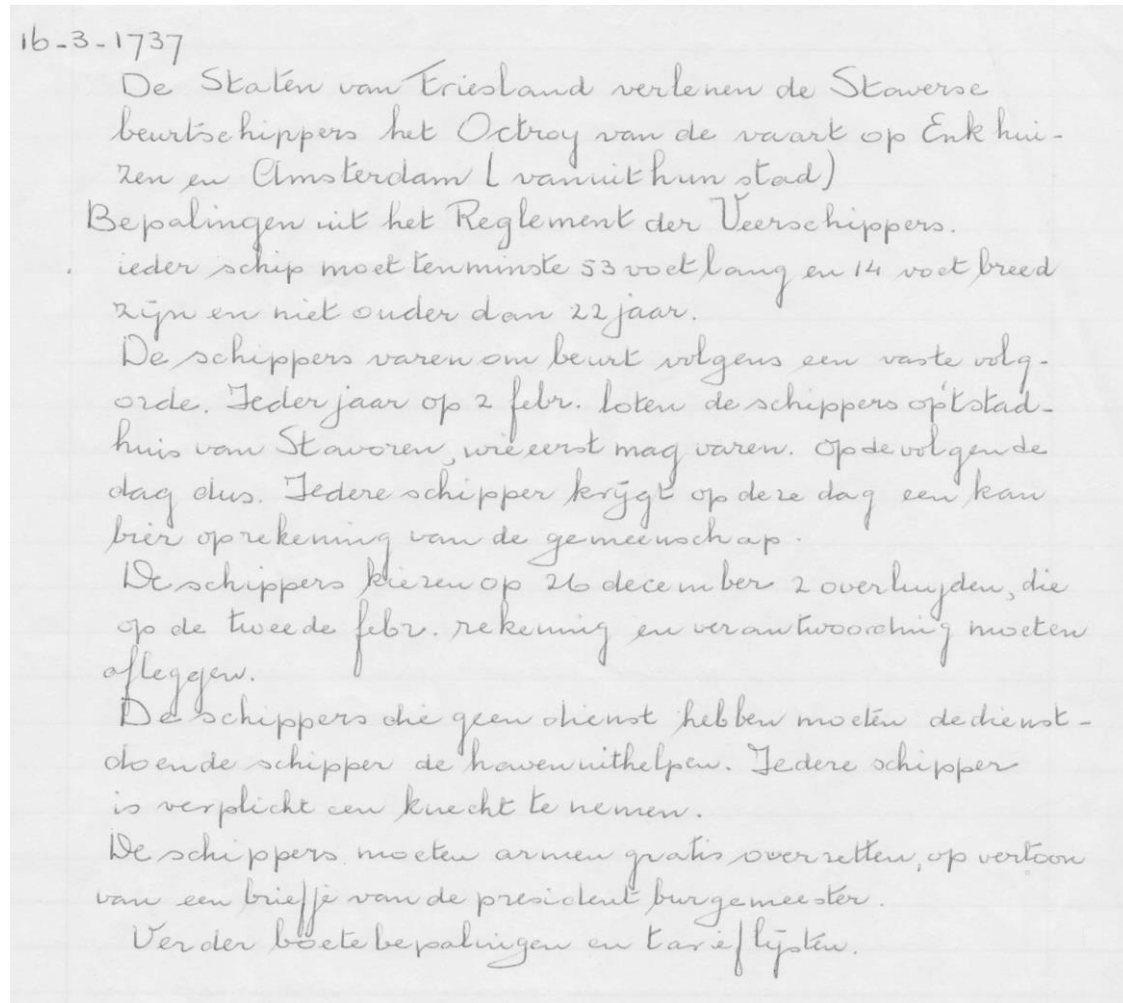 16-3-1737
De Staten van Friesland verlenen de Staverse
beurtschippers het Octroy van de vaart op Enkhui-
zen en Amsterdam (vanuit hun stad)
Bepalingen uit het Reglement der Veerschippers.
ieder schip moet tenminste 53 voet lang en 14 voet breed
zijn en niet ouder dan 22 jaar.
De schippers varen om beurt volgens een vaste volg-
orde. Ieder jaar op 2 febr. loten de schippers op 't stad-
huis van Stavoren, wie eerst mag varen. Op de volgende
dag dus. Iedere schipper krijgt op deze dag een kan
bier op rekening van de gemeenschap.
De schippers kiezen op 26 december 2 overluyden, die
op de tweede febr. rekening en verantwoording moeten
afleggen.
De schippers die geen dienst hebben moeten de dienst-
doende schipper de haven uithelpen. Iedere schipper
is verplicht een knecht te nemen.
De schippers moeten armen gratis overzetten, op vertoon
van een briefje van de president burgemeester.
Verder boetebepalingen en tarieflijsten.